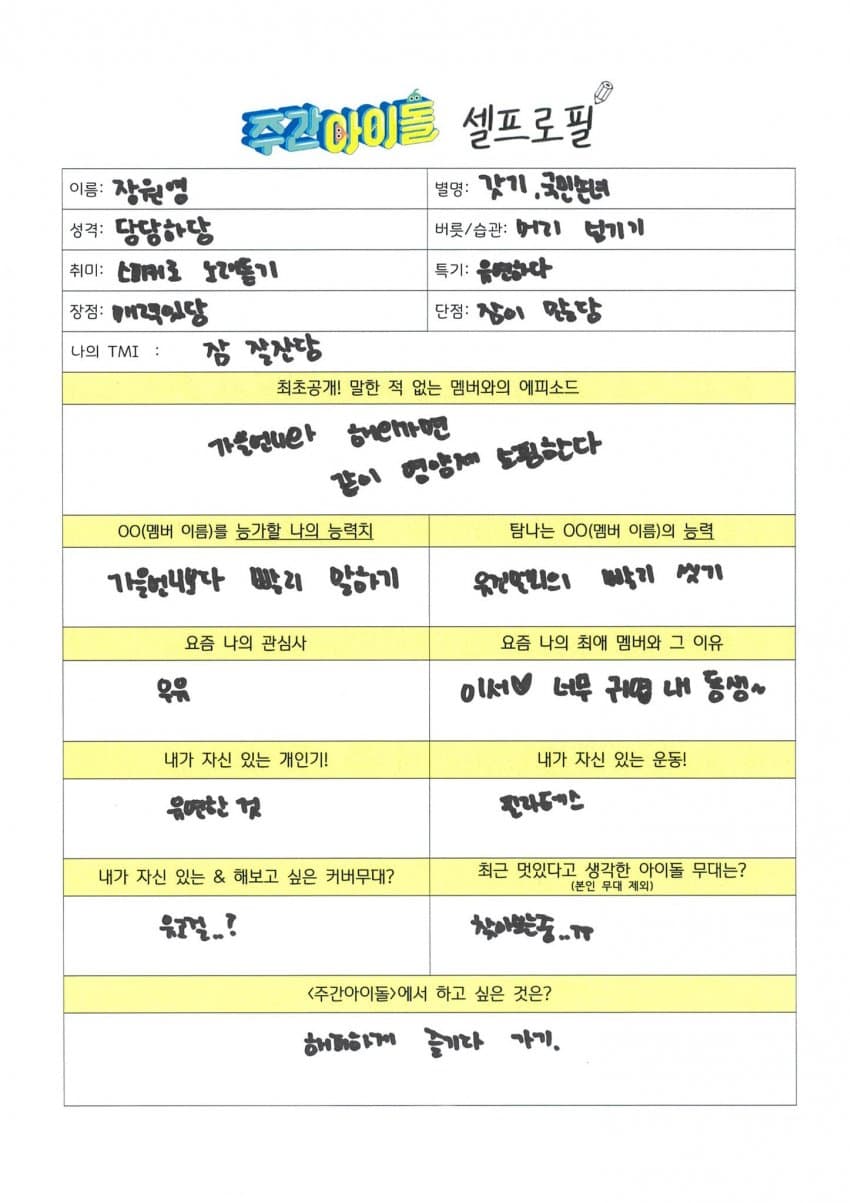 주간아이돌 셀프로필
이름: 장원영 별명: 갓기, 국민손녀
성격: 당당하당 버릇/습관: 머리 넘기기
취미: 스피커로 노래듣기 특기: 유연하다
장점: 매력있당 단점: 잠이 많당
나의 TMI : 잠 잘잔당
최초공개! 말한 적 없는 멤버와의 에피소드
가을언니와 해외가면
같이 영양제 쇼핑한다
OO(멤버 이름)를 능가할 나의 능력치 탐나는 OO(멤버 이름)의 능력
가을언니보다 빨리 말하기 유진언니의 빨리 씻기
요즘 나의 관심사 요즘 나의 최애 멤버와 그 이유
우유 이서♥ 너무 귀여운 내 동생~
내가 자신 있는 개인기! 내가 자신 있는 운동!
유연한 것 필라테스
내가 자신 있는 & 해보고 싶은 커버무대? 최근 멋있다고 생각한 아이돌 무대는?
(본인 무대 제외)
유고걸..? 찾아보는중..ㅠㅠ
<주간아이돌>에서 하고 싶은 것은?
해피하게 즐기다 가기.